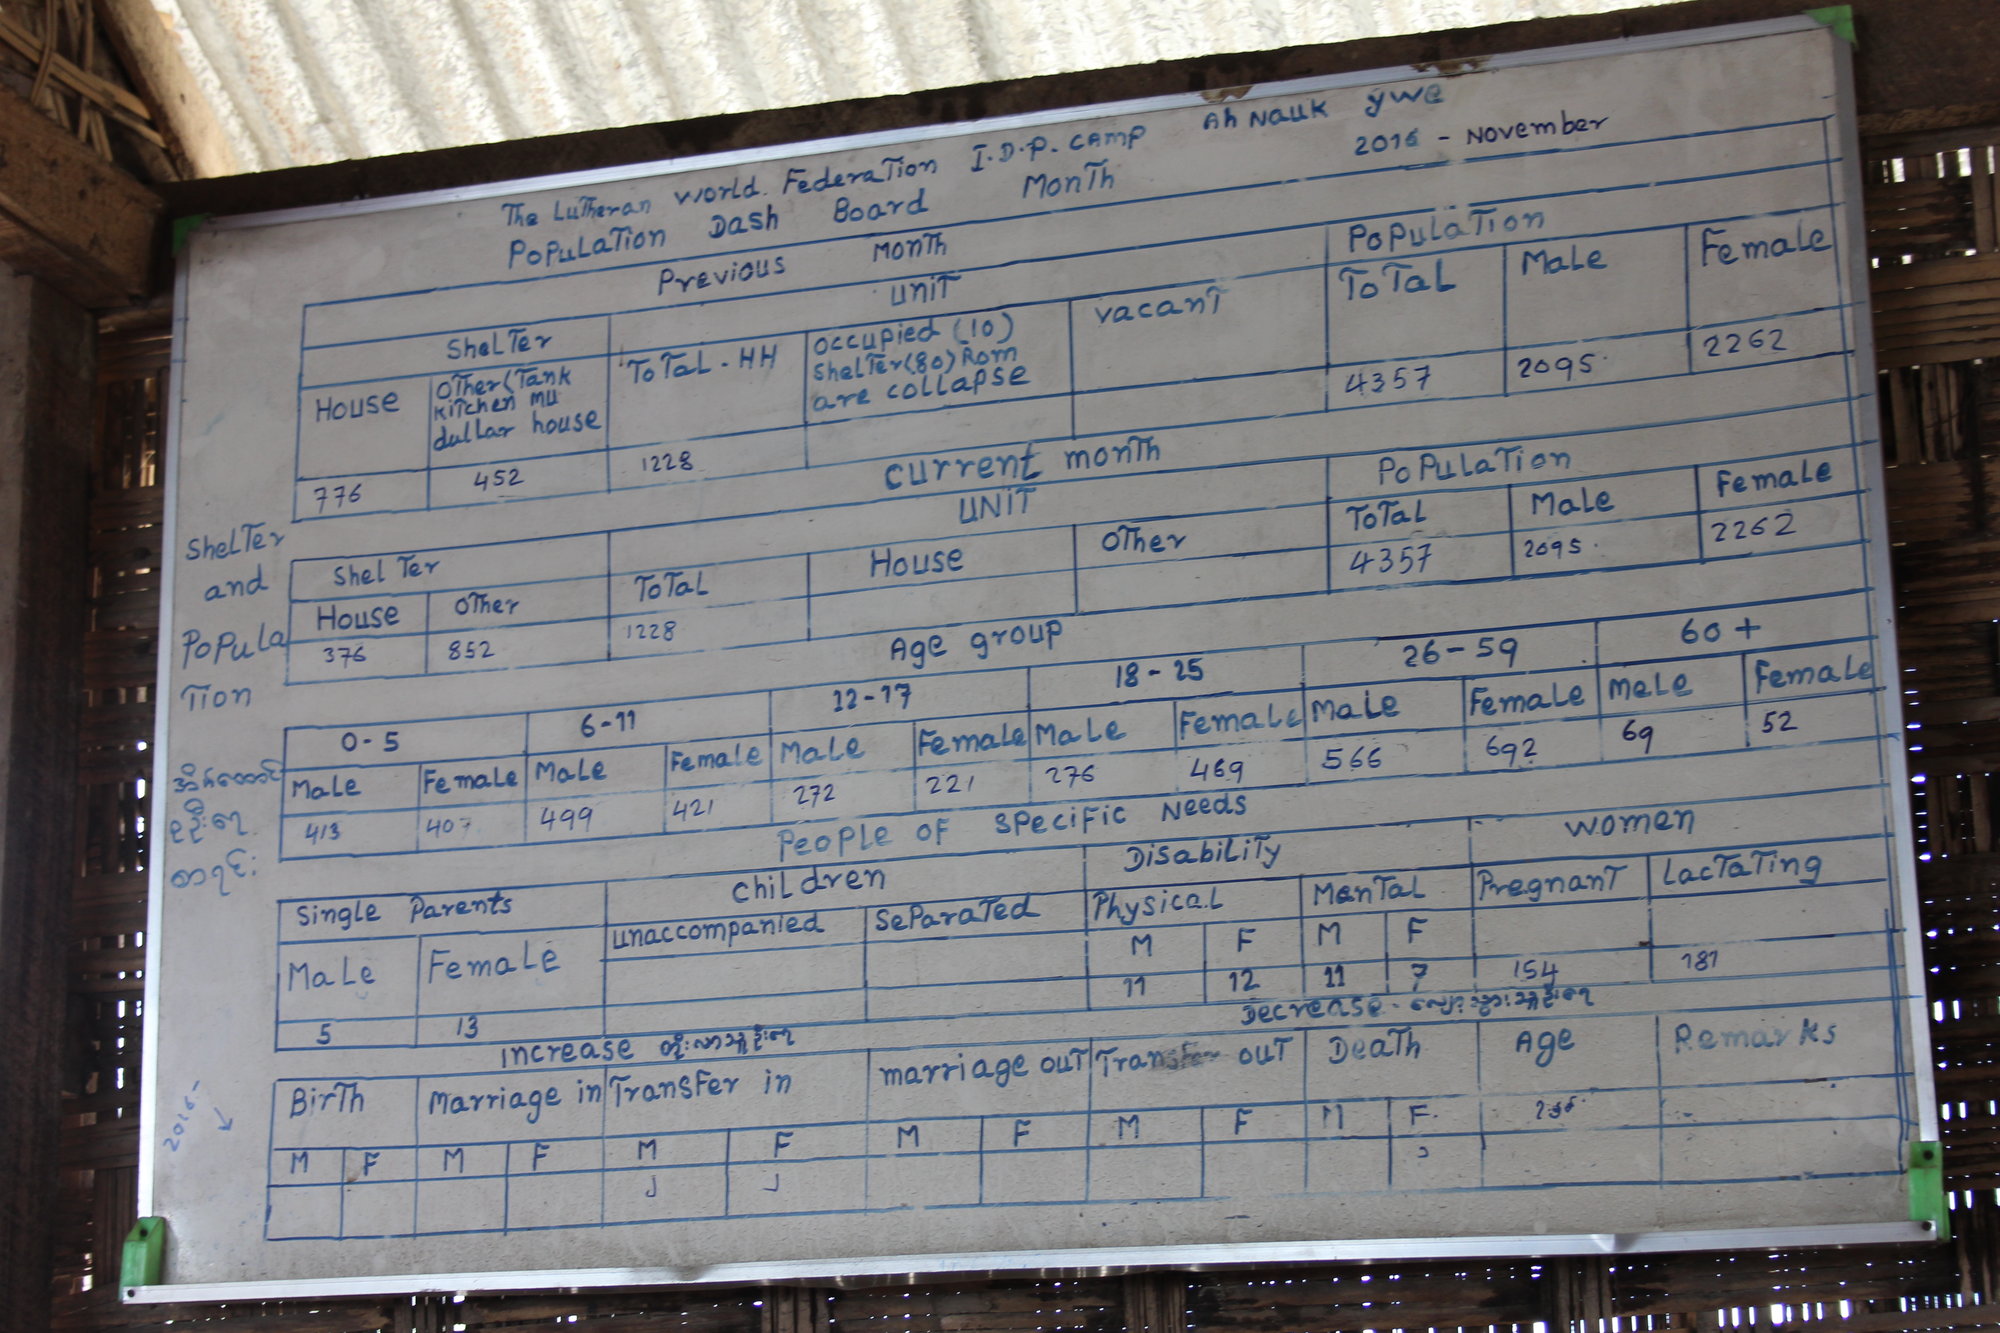 The Lutheran World Federation I.D.P. Camp Ah Nauk Ywe
Population Dash Board Month 2016 - November
Previous Month
Shelter UNIT Population
House Other (Tank kitchen mu dullar house Total - HH occupied (10) Shelter (80) Rom are collapse vacant Total Male Female
776 452 1228 4357 2095 2262
current month
Shelter UNIT Population
House Other Total House Other Total Male Female
376 852 1228 4357 2095 2262
Shelter
and
Popula
Tion
Age group
0-5 6-11 12-17 18-25 26-59 60+
Male Female Male Female Male Female Male Female Male Female Mele Female
413 407 499 421 272 221 276 469 566 692 69 52
People of Specific Needs
Single Parents Children Disability Women
Male Female unaccompanied Separated Physical Mental Pregnant Lactating
M F M F
5 13 11 12 11 7 154 181
increase တိုးလာသူဦးရေ Decrease - လျော့သွားသူဦးရေ
Birth Marriage in Transfer in marriage out Transfer out Death Age Remarks
M F M F M F M F M F M F
၂ ၂
2016 -